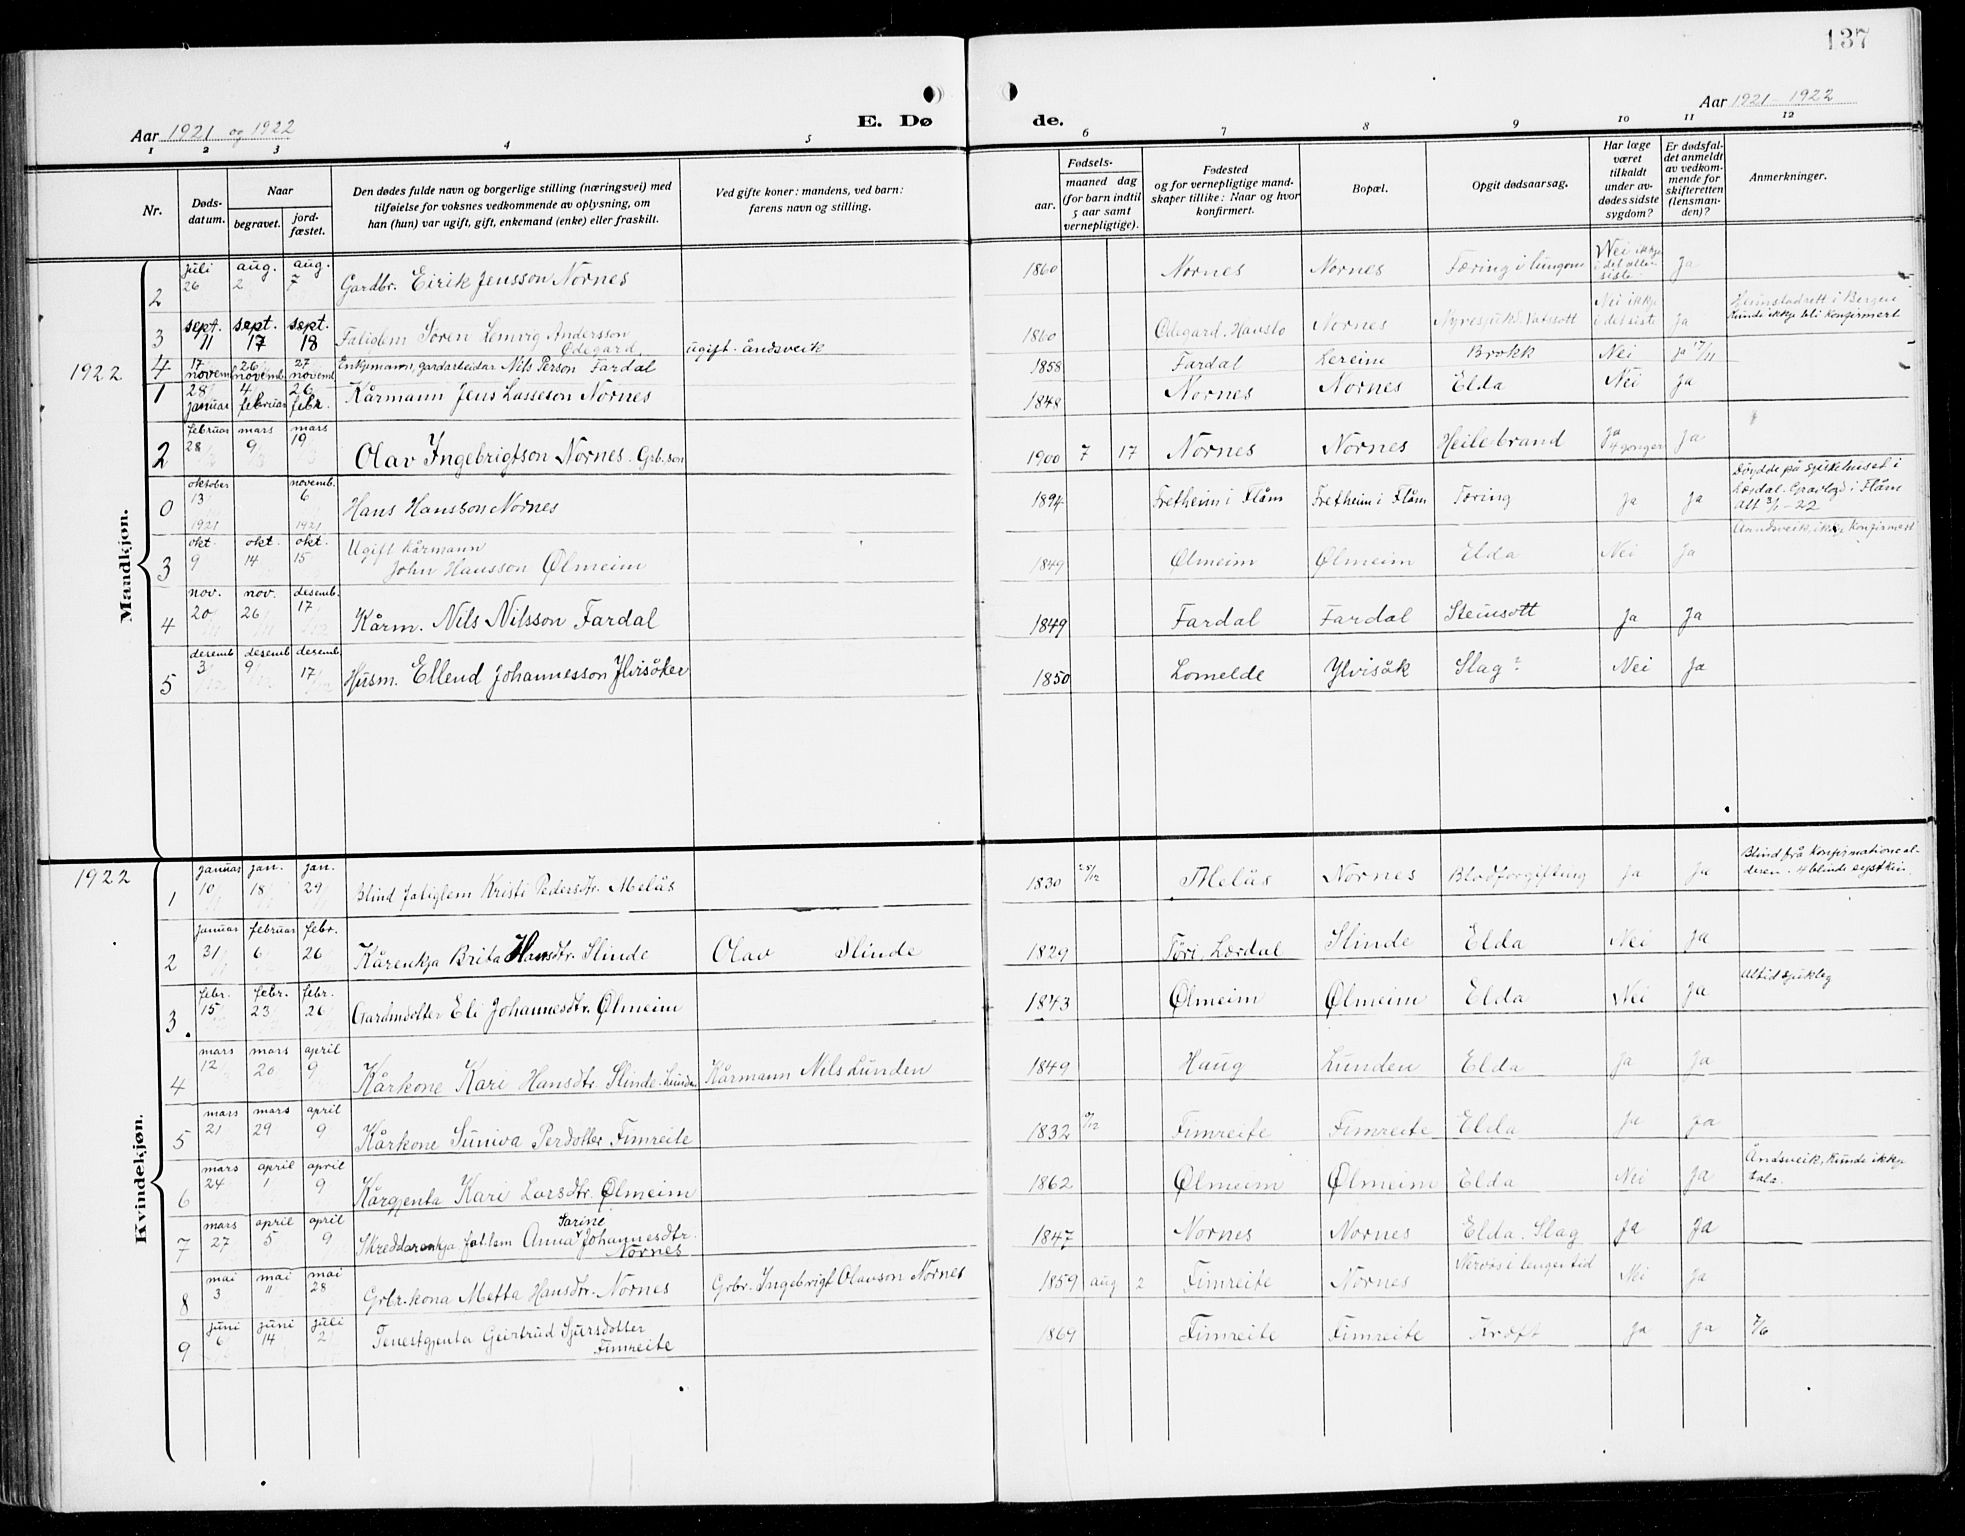 137
Aar 1921 og 1922
E. Dø
de.
Aar 1921 - 1922
1 2 3 4 5 6 7 8 9 10 11 12
Nr.
Døds-
datum.
Naar
begravet.
jord-
fæstet.
Den dødes fulde navn og borgerlige stilling (næringsvei) med
tilføielse for voksnes vedkommende av oplysning, om
han (hun) var ugift, gift, enkemand (enke) eller fraskilt.
Ved gifte koner: mandens, ved barn:
farens navn og stilling.
Fødsels-
aar.
maaned dag
(for barn indtil
5 aar samt
vernepligtige).
Fødested
og for vernepligtige mand-
skaper tillike: Naar og hvor
konfirmert.
Bopæl.
Opgit dødsaarsag.
Har læge
været
tilkaldt
under av-
dødes sidste
sygdom?
Er dødsfal-
det anmeldt
av vedkom-
mende for
skifteretten
(lensman-
den)?
Anmerkninger.
Maandkjøn.
2 juli 26 aug. 2 aug. 7 Gardbr. Eirik Jensson Nornes 1860 Nornes Nornes Tæring i lungone Nei ikkje
i det aller
siste Ja
3 sept. 11 sept. 17 sept. 18 Fatiglem Sören Lemvig Andersson
Ødegard ugift - åndsveik 1860 Ødegard. Hauslo Nornes Nyresjuk. Vatssott Nei ikkje
i det siste Ja Heimstadrett i Bergen
Kunde ikkje bli konfirmert
4 17 novemb 26 novemb 27 novemb Enkjemann, gardarbeidar Nils Person Fardal 1858 Fardal Lereim Brokk Nei Ja 17/11
1922
1 28 januar 4 februar 26 febr. Kårmann Jens Lasseson Nornes 1848 Nornes Nornes Elda Nei Ja
2 februar 28 mars 9 mars 19 Olav Ingebrigtson Nornes. Grb.son 1900 7 17 Nornes Nornes Heilebrand Ja
4 gonger Ja
0 oktober 13 1921 novemb. 6 1921 Hans Hansson Nornes 1894 Fretheim i Flåm Fretheim i Flåm Tæring Ja Ja Döydde på sjukehuset i
Lærdal. Gravlagd i Flåm
Att 3/1 - 22
3 okt. 9 okt. 14 okt. 15 Ugift kårmann
John Hansson Ølmeim 1849 Ølmeim Ølmeim Elda Nei Ja Aandsveik, ikkje konfirmert
4 nov. 20 nov. 26 desemb. 17 Kårm. Nils Nilsson Fardal 1849 Fardal Fardal Steinsott Ja Ja
5 desemb 3 desemb 9 desemb 17 Husm. Ellend Johannesson Ylvisåker 1850 Lomelde Ylvisåk Slag? Nei Ja
Kvindekjøn.
1922
1 januar 10 jan. 18 jan. 29 Blind fatiglem Kristi Pedersdtr. Melås 1830 25/12 Melås Nornes Blodforgifting Ja Ja Blind frå konfirmational-
deren. 4 blinde syskin.
2 januar 31 februar 6 febr. 26 Kårenkja Brita Hansdtr. Slinde Olav Slinde 1829 Töri, Lærdal Slinde Elda Nei Ja
3. febr. 15 febr. 23 febr. 26 Gardmdotter Eli Johannesdtr. Ølmeim 1843 Ølmeim Ølmeim Elda Nei Ja Altid sjukleg
4 mars 12 mars 20 april 9 Kårkone Kari Hansdtr. Slinde-Lunden Kårmann Nils Lunden 1849 Haug Lunden Elda Ja Ja
5 mars 21 mars 29 april 9 Kårkone Suniva Perdotter Fimreite 1832 Fimreite Fimreite Elda Ja Ja
6 mars 24 april 1 april 9 Kårgjenta Kari Larsdtr. Ølmeim 1862 Ølmeim Ølmeim Elda Nei Ja Åndsveik, kunde ikkje
tala.
7 mars 27 april 5 april 9 Skreddarenkja fat.lem Anna Sarine Johannesdtr.
Nornes 1847 Nornes Nornes Elda. Slag Ja Ja
8 mai 3 mai 11 mai 28 Grbr.kona Metta Hansdtr. Nornes Grbr. Ingebrigt Olavson Nornes 1859 aug 2 Fimreite Nornes Nervös i lenger tid Nei Ja
9 juni 6 juni 14 juli 2 Tenestgjenta Geirtrud Sjursdotter
Fimreite 1869 Fimreite Fimreite Kræft Ja Ja 7/6